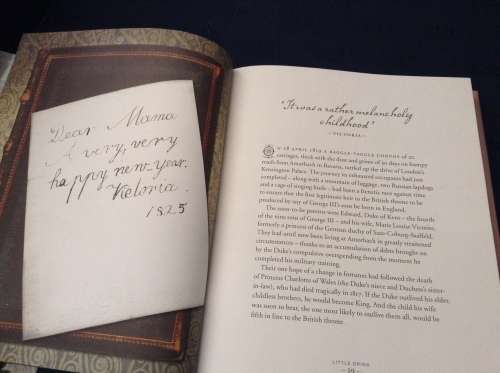 Dear Mama
A very, very
happy new-year.
Victoria.
1825
"It was a rather melancholy
childhood"
VICTORIA
ON 18 APRIL 1819 A RAGGLE-TAGGLE CONVOY OF 20
carriages, thick with the dust and grime of 20 days on bumpy
roads from Amorbach in Franconia, rattled up the drive of London's
Kensington Palace. The journey in ordinary rented carriages had been
completed – along with a mountain of luggage, two Russian lapdogs
and a cage of singing birds – had been a frenetic race against time
to ensure that the first legitimate heir to the British throne to be
produced by any of George III's sons be born in England.
The soon-to-be parents were Edward, Duke of Kent – the fourth
of the nine sons of George III – and his wife, Marie Louise Victoire,
formerly a princess of the German duchy of Saxe-Coburg-Saalfeld.
They had until now been living at Amorbach in greatly straitened
circumstances – thanks to an accumulation of debts brought on
by the Duke's compulsive overspending from the moment he
completed his military training.
Their one hope of a change in fortunes had followed the death
of Princess Charlotte of Wales (the Duke's niece and Duchess's sister-
in-law), who had died tragically in 1817. If the Duke outlived his elder,
childless brothers, he would become King. And the child his wife
was soon to bear, the one most likely to outlive them all, would be
fifth in line to the British throne.
LITTLE DRINA